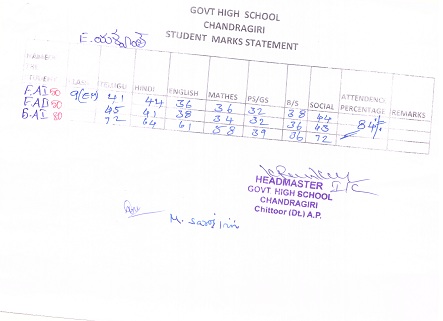 GOVT HIGH SCHOOL
CHANDRAGIRI
STUDENT MARKS STATEMENT
CLASS TELUGU HINDI ENGLISH MATHES PS/GS B/S SOCIAL ATTENDENCE PERCENTAGE REMARKS
F.AI 50 9(EM) 41 44 36 36 32 38 44 84%
F.AII 50 45 41 38 34 32 36 43
S.AI 80 72 64 61 58 39 36 72
HEADMASTER I/C
GOVT HIGH SCHOOL
CHANDRAGIRI
Chittoor (Dt.) A.P.
M. Sarojini